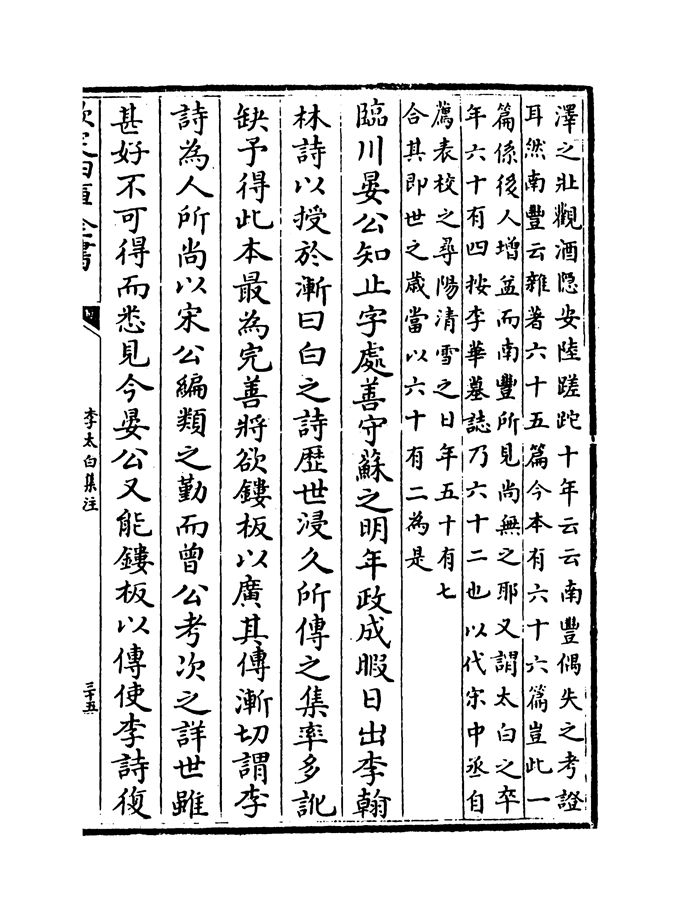 澤之壯觀酒隠安陸蹉跎十年云云南豐偶失之考證
耳然南豐云雜著六十五篇今本有六十六篇豈此一
篇係後人增益而南豐所見尚無之耶又謂太白之卒
年六十有四按李華墓誌乃六十二也以代宋中丞自
薦表校之尋陽清雪之日年五十有七
合其即世之歲當以六十有二為是
臨川晏公知止字處善守蘇之明年政成暇日出李翰
林詩以授於漸曰白之詩歷世浸久所傳之集率多訛
缺予得此本最為完善將欲鏤板以廣其傳漸切謂李
詩為人所尚以宋公編類之勤而曾公考次之詳世雖
甚好不可得而悉見今晏公又能鏤板以傳使李詩復
欽定四庫全書
李太白集注
三十五